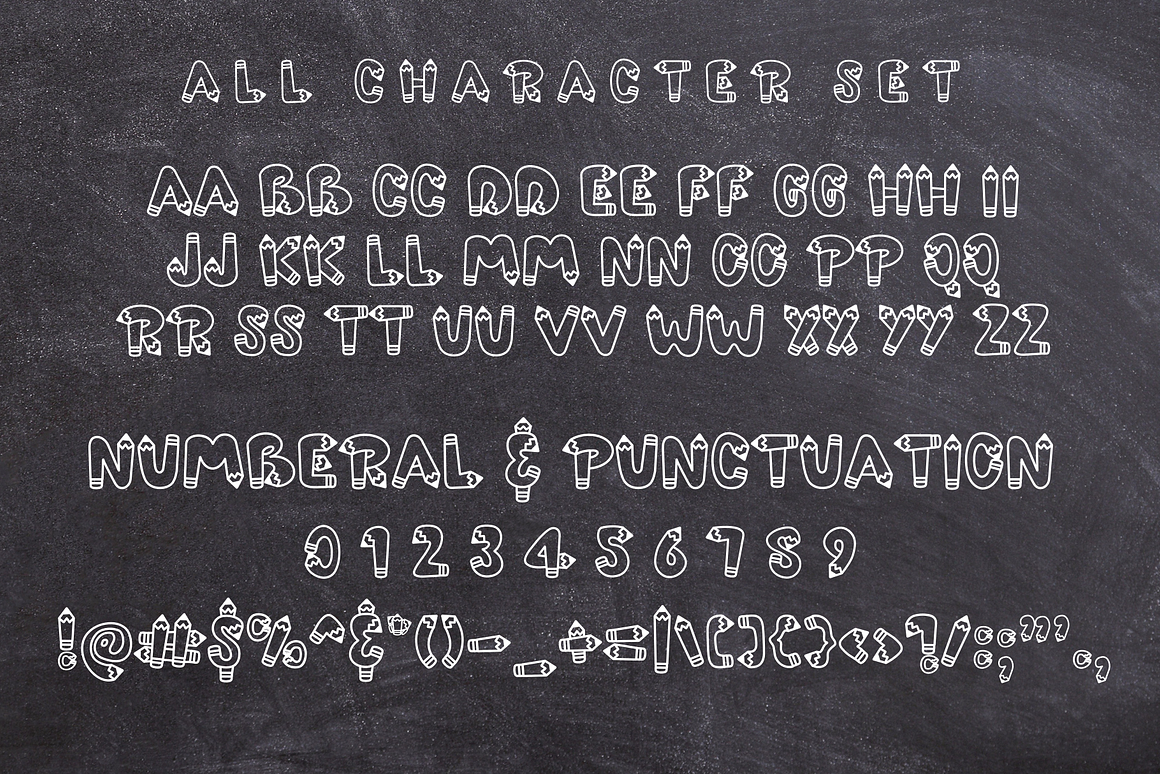 ALL CHARACTER SET
AA BB CC DD EE FF GG HH II
JJ KK LL MM NN OO PP QQ
RR SS TT UU VV WW XX YY ZZ
NUMBERAL & PUNCTUATION
0 1 2 3 4 5 6 7 8 9
!@#$%^&*()-_+=|\[]{}<>?/:;"'.,